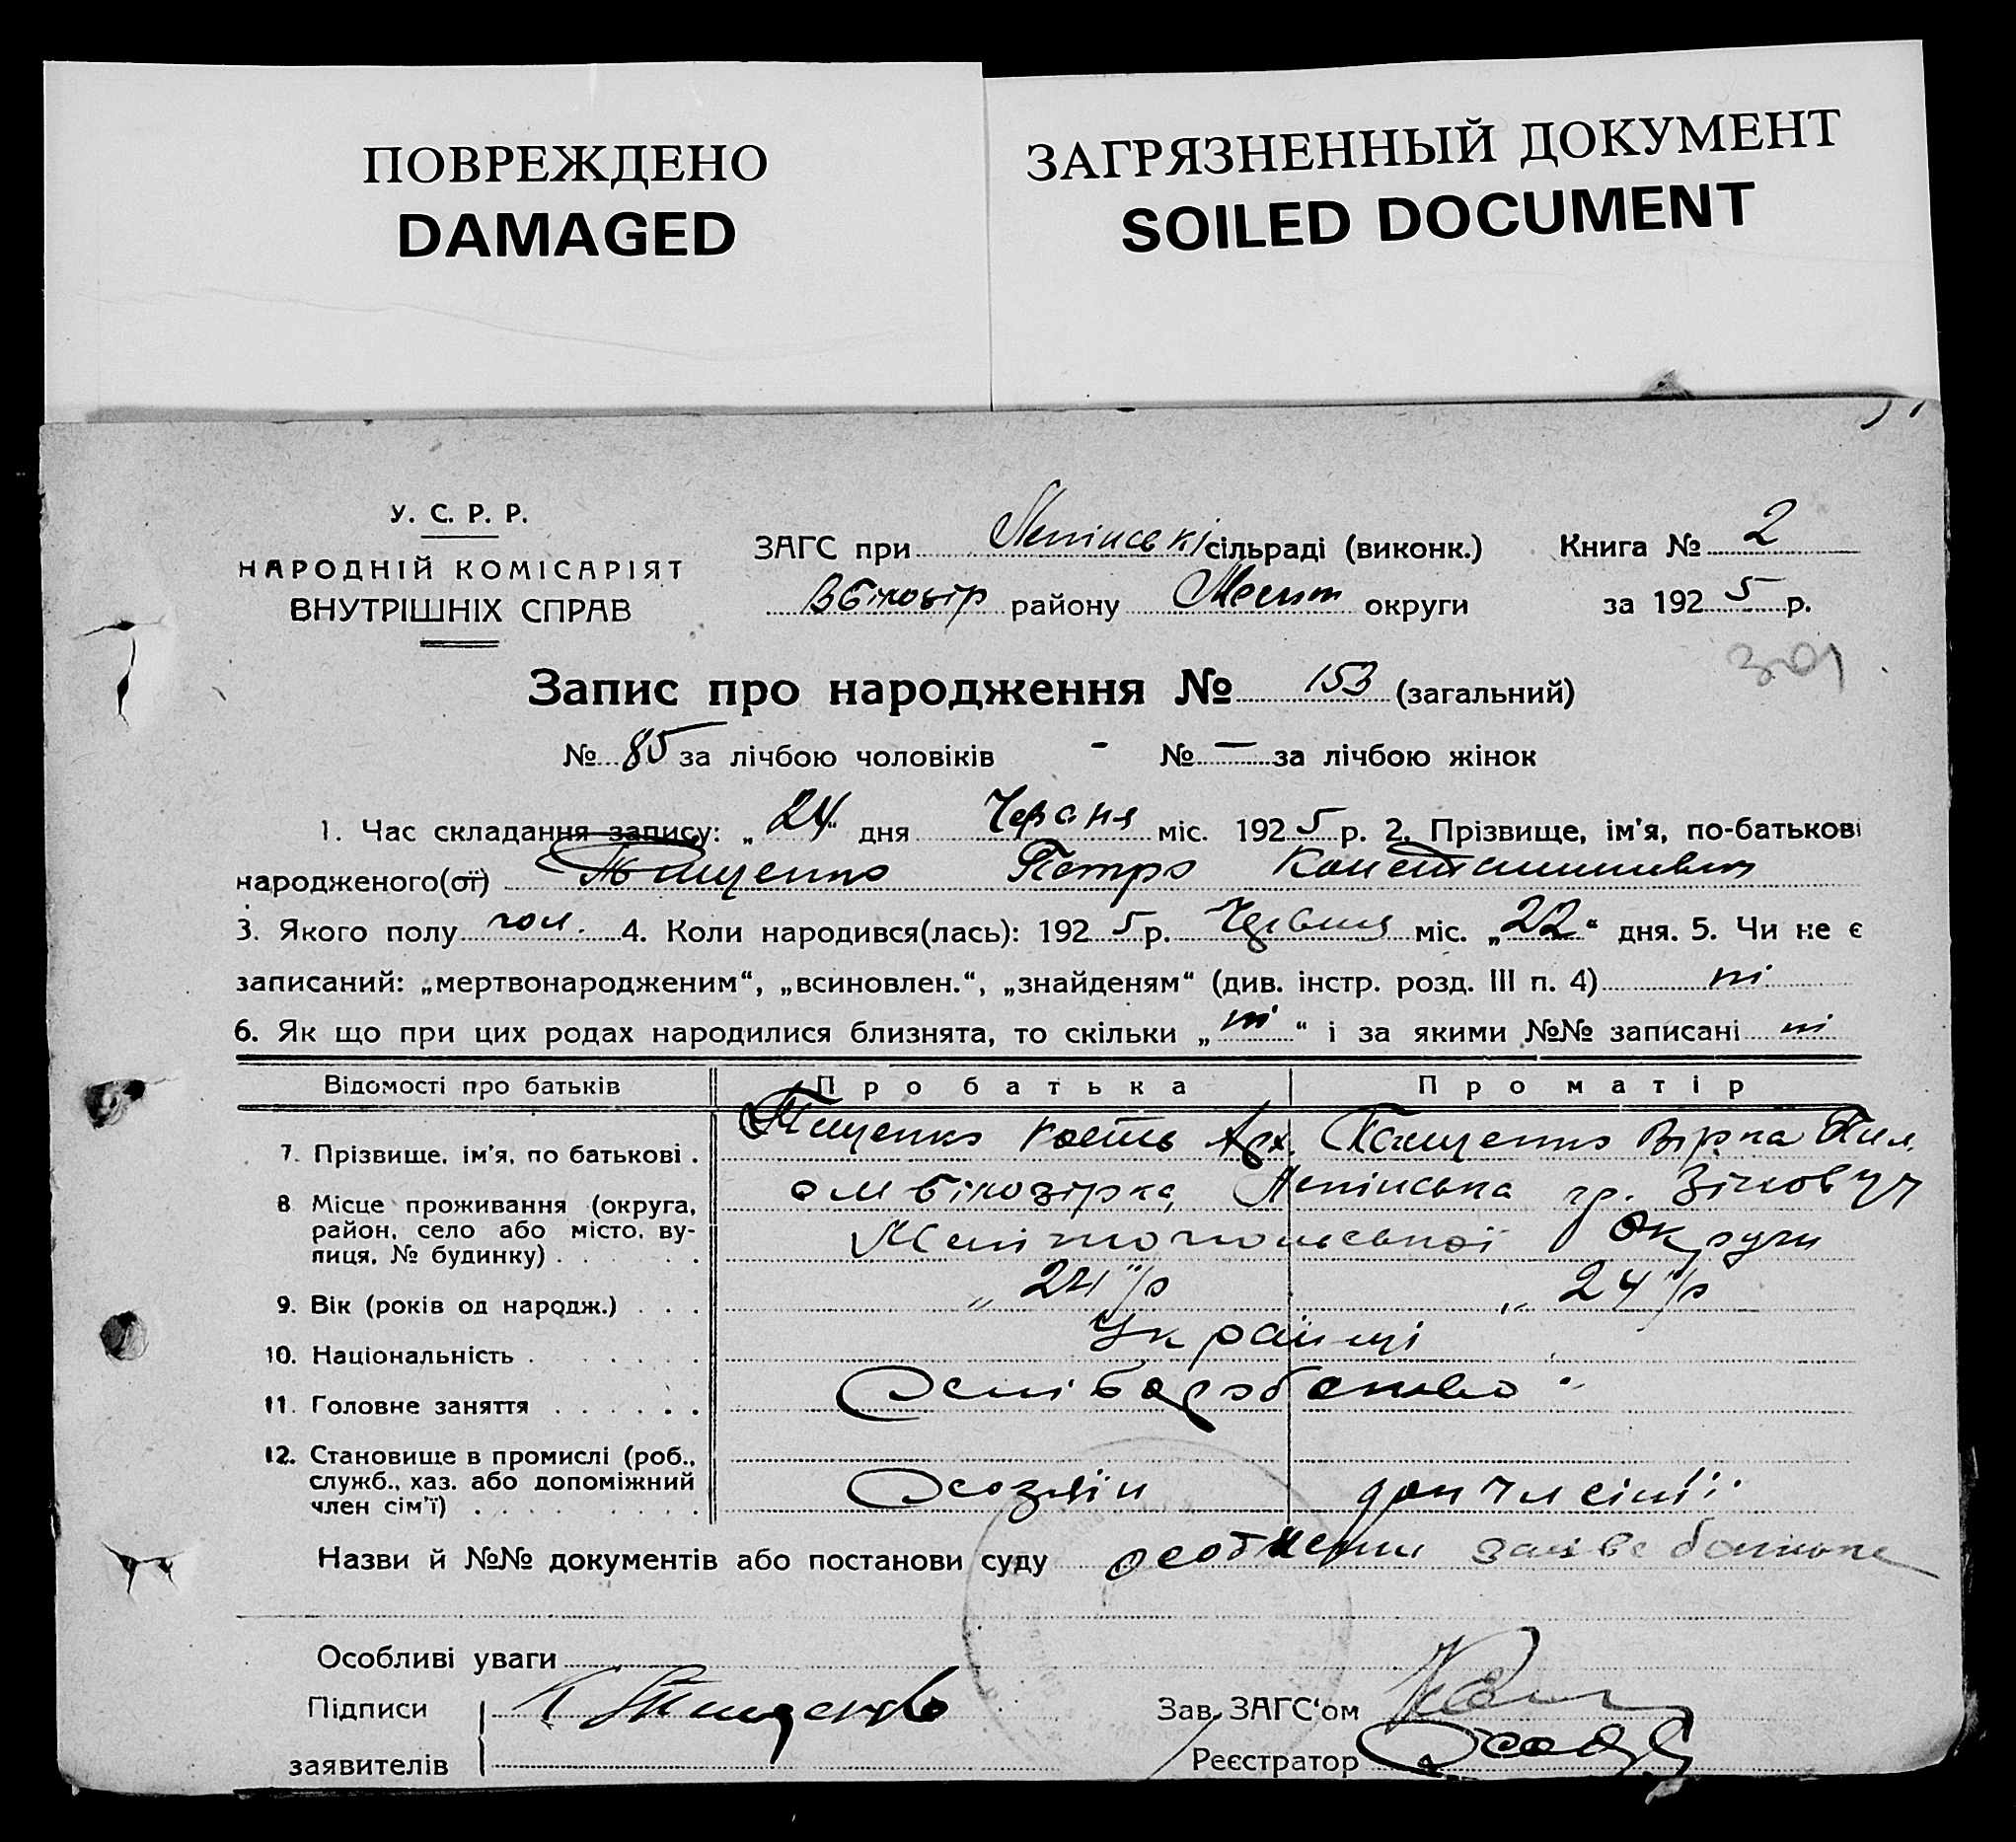 ПОВРЕЖДЕНО
DAMAGED
ЗАГРЯЗНЕННЫЙ ДОКУМЕНТ
SOILED DOCUMENT
У. С. Р. Р.
НАРОДНІЙ КОМІСАРІЯТ
ВНУТРІШНІХ СПРАВ
ЗАГС при сільраді (виконк.) Книга № 2
району округи за 1925 р.
301
Запис про народження № 153 (загальний)
№ 85 за лічбою чоловіків - № — за лічбою жінок
1. Час складання запису: „24“ дня Червня міс. 1925 р. 2. Прізвище, ім'я, по-батькові
народженого(ої) Тищенко Петро Константинович
3. Якого полу чол. 4. Коли народився(лась): 1925 р. Червня міс. „22“ дня. 5. Чи не є
записаний: „мертвонародженим“, „всиновлен.“, „знайденям“ (див. інстр. розд. III п. 4) ні
6. Як що при цих родах народилися близнята, то скільки „ні“ і за якими №№ записані ні
Відомості про батьків Про батька Про матір
7. Прізвище, ім'я, по батькові . Тищенко Кость Арх. Тищенко Вірка Пил.
8 Місце проживання (округа, район, село або місто, вулиця, № будинку) . . . . Білозірка, округи
9. Вік (років од народж.) . . . „24“ р „24“ р
10. Національність . . . . . . . Українці
11. Головне заняття . . . . . . Хліборобство
12. Становище в промислі (роб., служб., хаз. або допоміжний член сім'ї) . . . . . . . . Хозяїн доп член сімії
Назви й №№ документів або постанови суду особистій заяві батька
Особливі уваги
Підписи заявителів К Тищенко
Зав. ЗАГС'ом
Реєстратор